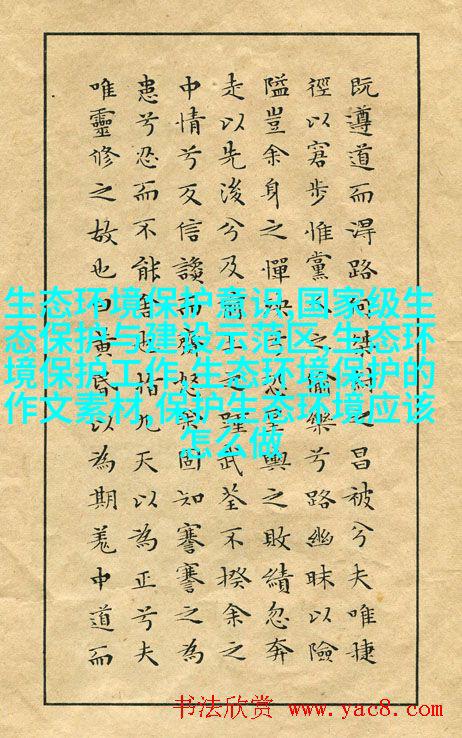 既遵道而得路何桀紂之昌被兮夫唯捷
徑以窘步惟黨人之偷樂兮路幽昧以險
隘豈余身之憚殃兮恐皇輿之敗績忽奔
走以先後兮及前王之踵武荃不揆余之
中情兮反信讒而齊怒余固知謇謇之為
患兮忍而不能舍也指九天以為正兮夫
唯靈修之故也曰黃昏以為期羌中道而
生态环境保护意识,国家级生
态保护与建设示范区,生态环
境保护工作,生态环境保护的
作文素材,保护生态环境应该
怎么做
书法欣赏 www.yac8.com